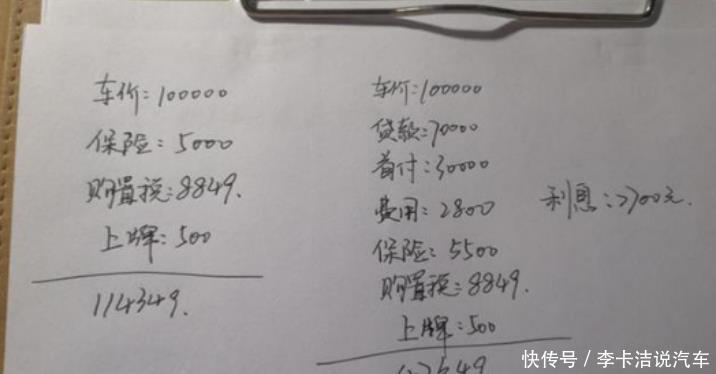 车价:100000
保险:5000
购置税:8849.
上牌:500
114349.
车价:100000
贷款:70000
首付:30000
费用:2800
利息:2700元.
保险:5500
购置税:8849.
上牌:500
快传号/李卡洁说汽车